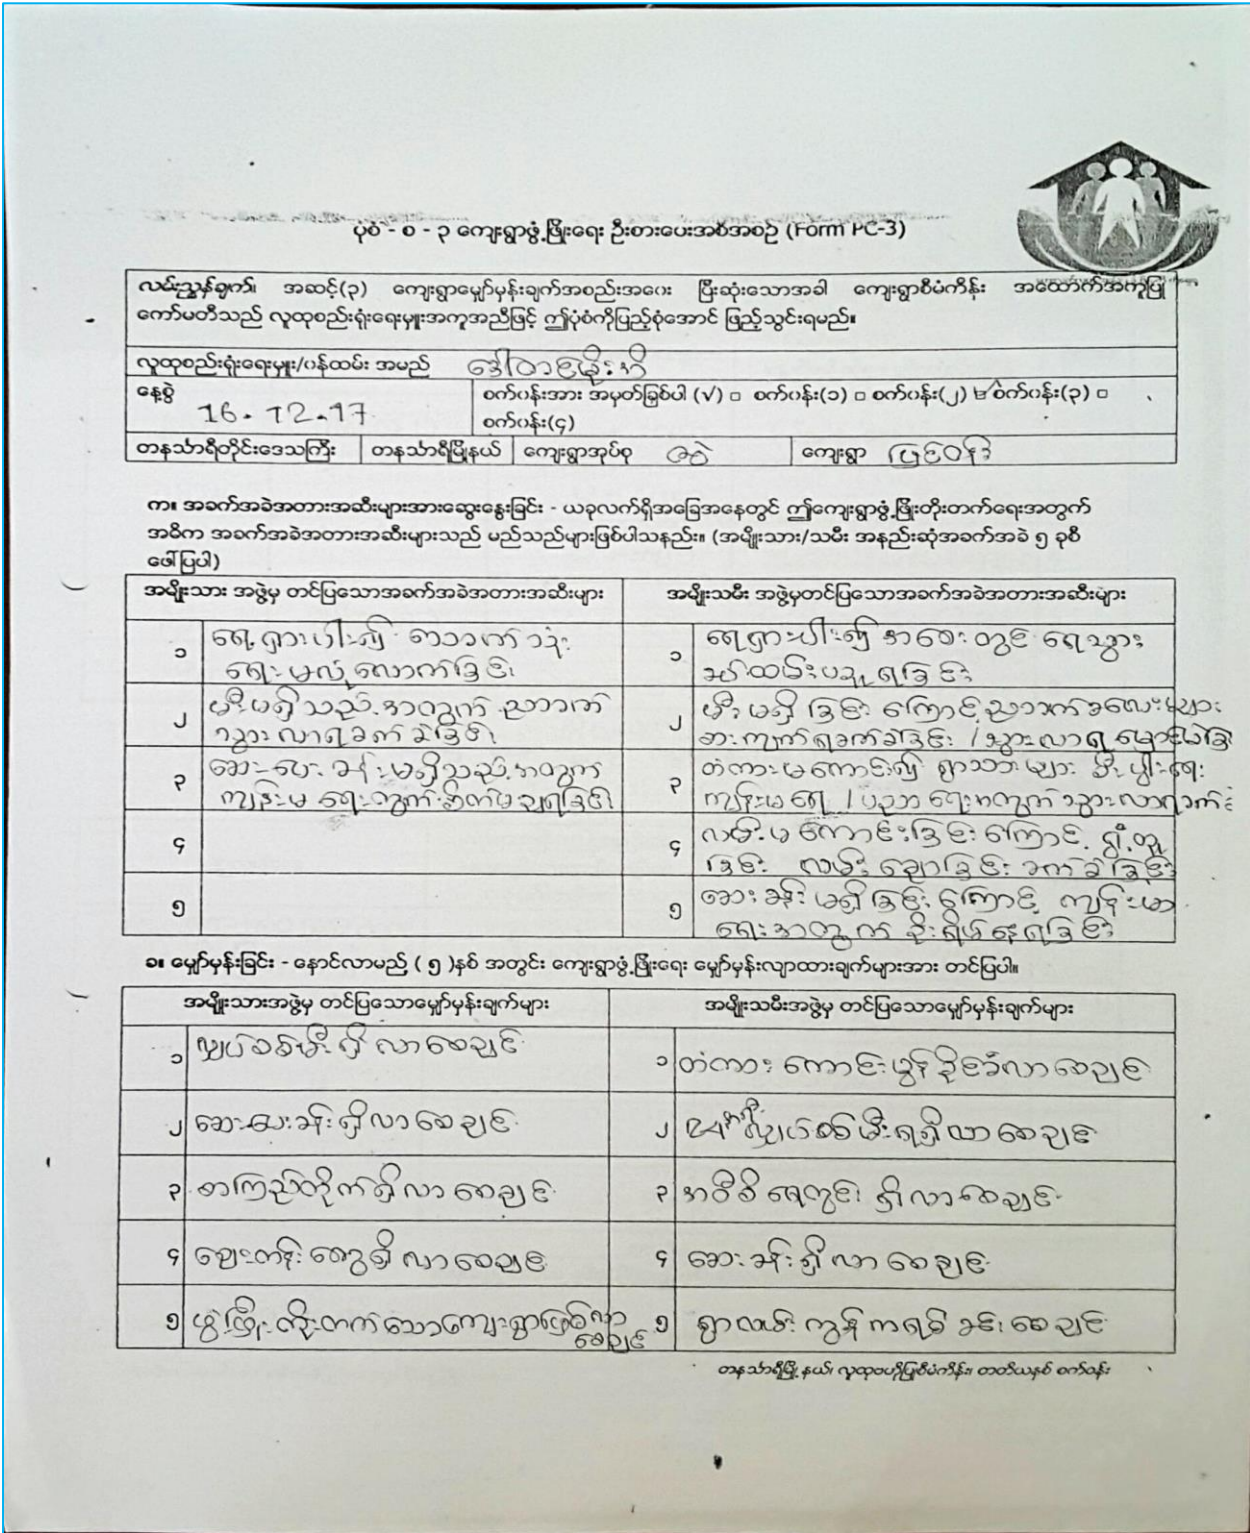 ပုံစံ - စ - ၃ ကျေးရွာဖွံ့ဖြိုးရေး ဦးစားပေးအစီအစဉ် (Form PC-3)
လမ်းညွှန်ချက်၊ အဆင့်(၃) ကျေးရွာမျှော်မှန်းချက်အစည်းအဝေး ပြီးဆုံးသောအခါ ကျေးရွာစီမံကိန်း အထောက်အကူပြု
ကော်မတီသည် လူထုစည်းရုံးရေးမှူးအကူအညီဖြင့် ဤပုံစံကိုပြည့်စုံအောင် ဖြည့်သွင်းရမည်။
လူထုစည်းရုံးရေးမှူး/ဝန်ထမ်း အမည်
နေ့စွဲ 16.12.17
စက်ဝန်းအား အမှတ်ခြစ်ပါ (√) □ စက်ဝန်း(၁) □ စက်ဝန်း(၂) ☑ စက်ဝန်း(၃) □
စက်ဝန်း(၄)
တနင်္သာရီတိုင်းဒေသကြီး တနင်္သာရီမြို့နယ် ကျေးရွာအုပ်စု ကျေးရွာ
က။ အခက်အခဲအတားအဆီးများအားဆွေးနွေးခြင်း - ယခုလက်ရှိအခြေအနေတွင် ဤကျေးရွာဖွံ့ဖြိုးတိုးတက်ရေးအတွက်
အဓိက အခက်အခဲအတားအဆီးများသည် မည်သည်များဖြစ်ပါသနည်း။ (အမျိုးသား/သမီး အနည်းဆုံးအခက်အခဲ ၅ ခုစီ
ဖေါ်ပြပါ)
အမျိုးသား အဖွဲ့မှ တင်ပြသောအခက်အခဲအတားအဆီးများ
အမျိုးသမီး အဖွဲ့မှတင်ပြသောအခက်အခဲအတားအဆီးများ
၁ ရေရှားပါး၍ သောက်သုံး
ရေးမလုံလောက်ခြင်း
၁ ရေရှားပါး၍ အဝေးတွင် ရေသွား
ခပ်ထမ်းယူရခြင်း
၂ မီးမရှိသည့်အတွက် ညဘက်
သွားလာရခက်ခဲခြင်း
၂ မီးမရှိခြင်းကြောင့် ညဘက်ကလေးများ
စာကျက်ရခက်ခဲခြင်း / သွားလာရ
၃ ဆေးပေးခန်းမရှိသည့်အတွက်
ကျန်းမာရေးအတွက်
၃ တံတားမကောင်း၍ ရွာသားများ စီးပွါးရေး
ကျန်းမာရေး / ပညာရေးအတွက် သွားလာရခက်
၄
၄ လမ်းမကောင်းခြင်းကြောင့်
ခြင်း လမ်းချော်ခြင်း ခက်ခဲခြင်း
၅
၅ ဆေးခန်းမရှိခြင်းကြောင့် ကျန်းမာ
ရေးအတွက် စိုးရိမ်နေရခြင်း
ခ။ မျှော်မှန်းခြင်း - နောင်လာမည့် ( ၅ )နှစ် အတွင်း ကျေးရွာဖွံ့ဖြိုးရေး မျှော်မှန်းလျာထားချက်များအား တင်ပြပါ။
အမျိုးသားအဖွဲ့မှ တင်ပြသောမျှော်မှန်းချက်များ
အမျိုးသမီးအဖွဲ့မှ တင်ပြသောမျှော်မှန်းချက်များ
၁ လျှပ်စစ်မီးရှိလာစေချင်
၁ တံတားကောင်းမွန်ခိုင်ခံ့လာစေချင်
၂ ဆေးပေးခန်းရှိလာစေချင်
၂ 24နာရီလျှပ်စစ်မီးရရှိလာစေချင်
၃ စာကြည့်တိုက်ရှိလာစေချင်
၃ အဝီစိရေတွင်းရှိလာစေချင်
၄ ဈေးတန်းတွေရှိလာစေချင်
၄ ဆေးခန်းရှိလာစေချင်
၅ ဖွံ့ဖြိုးတိုးတက်သောကျေးရွာဖြစ်လာ
စေချင်
၅ ရွာလမ်းကွန်ကရစ်ခင်းစေချင်
တနင်္သာရီမြို့နယ်၊ လူထုဗဟိုပြုစီမံကိန်း၊ တတိယနှစ် စက်ဝန်း